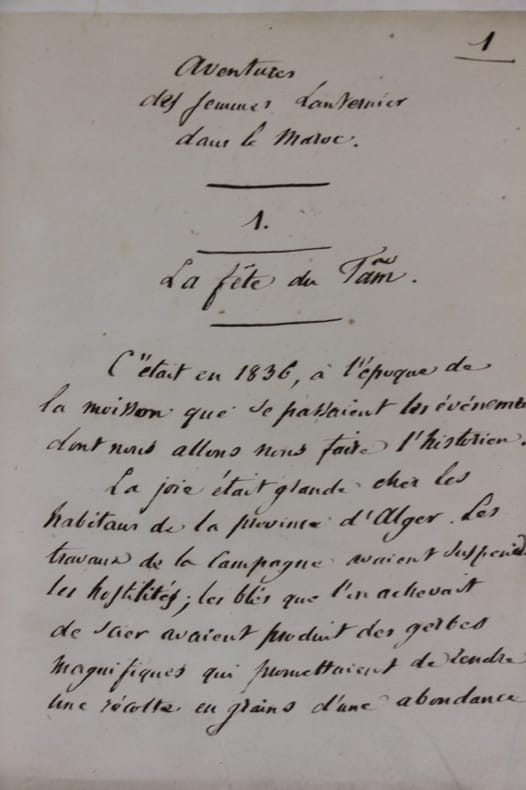 1
Aventures
des femmes Lanternier
dans le Maroc.
1.
La fête du Tam.
C'était en 1836, à l'époque de
la moisson que se passaient les événeme
dont nous allons nous faire l'historien.
La joie était grande chez les
habitans de la province d'Alger. Les
travaux de la Campagne avaient suspend
les hostilités; les blés que l'on achevait
de scier avaient produit des gerbes
magnifiques qui promettaient de rendre
une récolte en grains d'une abondance